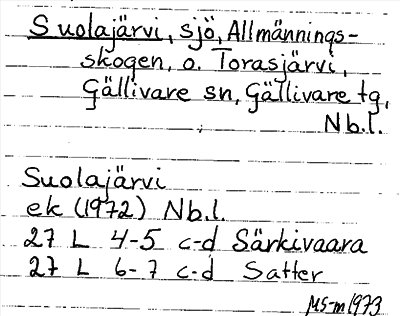 Suolajärvi, sjö, Allmännings-
skogen, o. Torasjärvi,
Gällivare sn, Gällivare tg,
Nb.l.
Suolajärvi
ek (1972) Nb.l.
27 L 4-5 c-d Särkivaara
27 L 6-7 c-d Satter
MS-m 1973